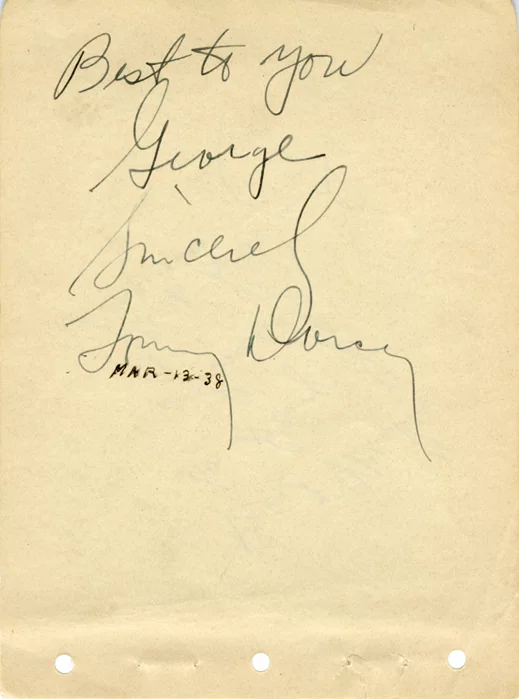 Best to you
George
Sincerel
Tommy Dorsey
MAR-13-38